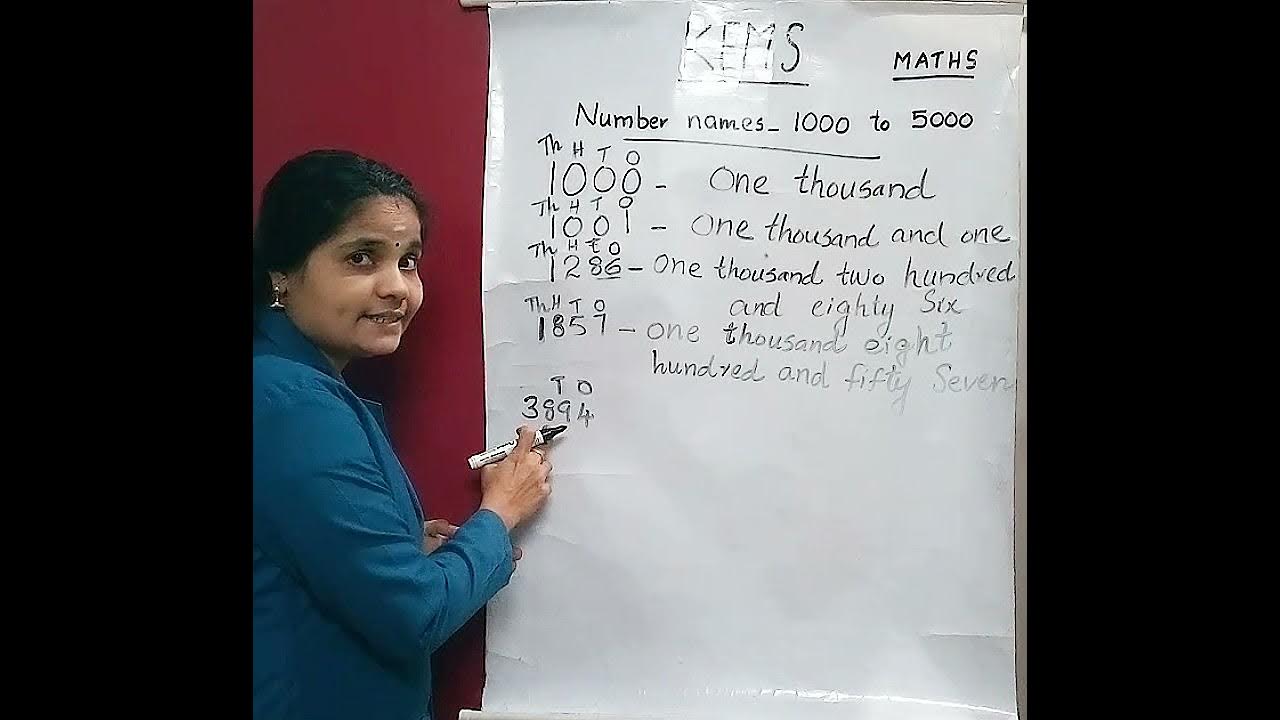 KEMS
MATHS
Number names- 1000 to 5000
Th H T O
1000 - One thousand
Th H T O
1001 - One thousand and one
Th H T O
1286 - One thousand two hundred
and eighty Six
Th H T O
1857 - one thousand eight
hundred and fifty Seven
T O
3894